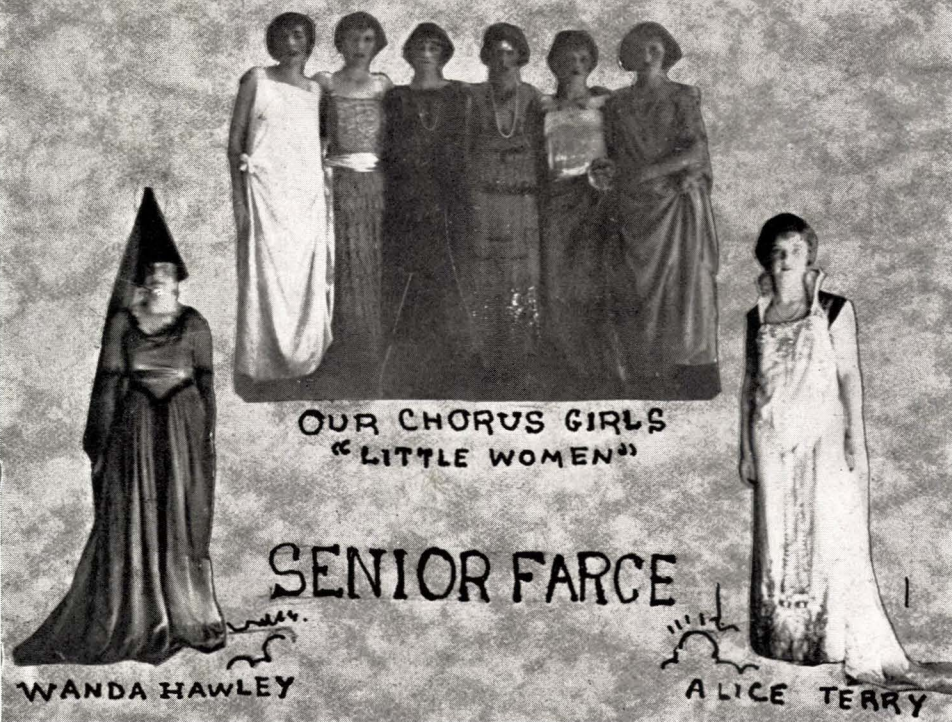 OUR CHORUS GIRLS
"LITTLE WOMEN"
SENIOR FARCE
WANDA HAWLEY
ALICE TERRY